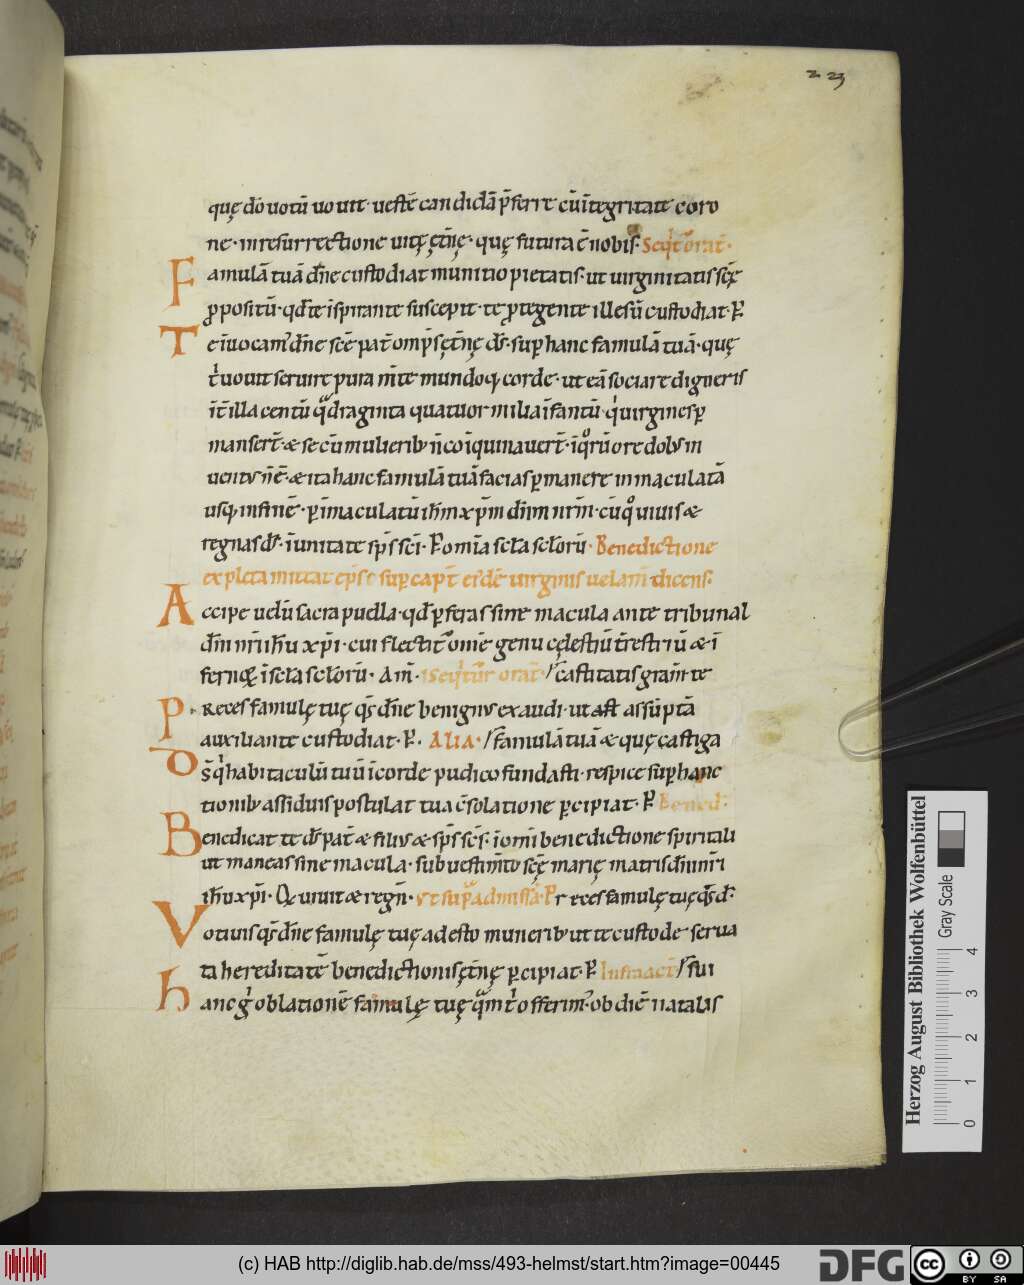 2 23
quę dō uotū uouit· uestē candidā p̄ferre cū ītegritate coro
ne· in resurrectione uitę ęt̄nę· quę futura ē nobis· Seq̇t orat̄·
Famulā tuā dn̄e custodiat munitio pietatis· ut uirginitatis scę̄
ꝓpositū· qd̄ te īspirante suscepit· te ꝓtegente illesū custodiat· P̱
Te īuocam᷒ dn̄e scē pat̄ omp̄s ęt̄nę ds̄· suꝑ hanc famulā tuā· quę
t' uouit seruire pura m̄te mundoq; corde· ut eā sociare digneris
īt̄ illa centū q̊draginta quatuor milia īfantū· q' uirgines ꝑ
manser̄t· æ se cū mulierib; n̄ coīquinauer̄t· ī q̊rū ore dolus in
uentus n̄ ē· æ ita hanc famulā tuā facias ꝑmanere inmaculatā
usq; in finē· ꝑ īmaculatū ihm̄ xpm̄ dn̄m nr̄m· cū q̊ uiuis æ
regnas ds̄· ī unitate sp̄s sc̄i· P̱ om̄ia sc̄la sc̄lorū· Benedictione
expleta mittat ep̄s suꝑ capt̄ eiusdē uirginis uelam̄ dicens·
Accipe uelū sacrū puella· qd̄ ꝑferas sine macula ante tribunal
dn̄i nr̄i ihū xp̄i· cui flectit᷒ om̄e genu cęlestiū t̄restriū æ ī
fernoꝝ ī sc̄la sc̄lorū· Am̄· Seq̇t᷒ orat̄· / castitatis gram̄ te
Preces famulę tuę qs̄ dn̄e benignus exaudi· ut assūptā
auxiliante custodiat· P̱· ALIA· / famulā tuā æ quę castiga
Ds̄ q' habitaculū tuū ī corde pudico fundasti· respice suꝑ hanc
tionib; assiduis postulat tua c̄solatione ꝑcipiat· P̱ Bened̄·
Benedicat te ds̄ pat̄ æ filius æ sp̄s sc̄s· ī om̄i benedictione spiritali
ut maneas sine macula· sub uestim̄to scę̄ marię matris dn̄i nr̄i
ihū xp̄i· Qi uiuit æ regn̄· ut supra ad missā· Preces famulę tuę qs̄ ds̄·
Votiuis qs̄ dn̄e famulę tuę adesto munerib; ut te custode serua
ta hereditatē benedictionis ęt̄nę ꝑcipiat· P̱ Infra act̄ / sui
hanc g' oblationē famulę tuę q̊m t' offerim᷒· ob diē natalis
Herzog August Bibliothek Wolfenbüttel
Gray Scale
0 1 2 3 4
(c) HAB http://diglib.hab.de/mss/493-helmst/start.htm?image=00445
DFG
cc BY SA